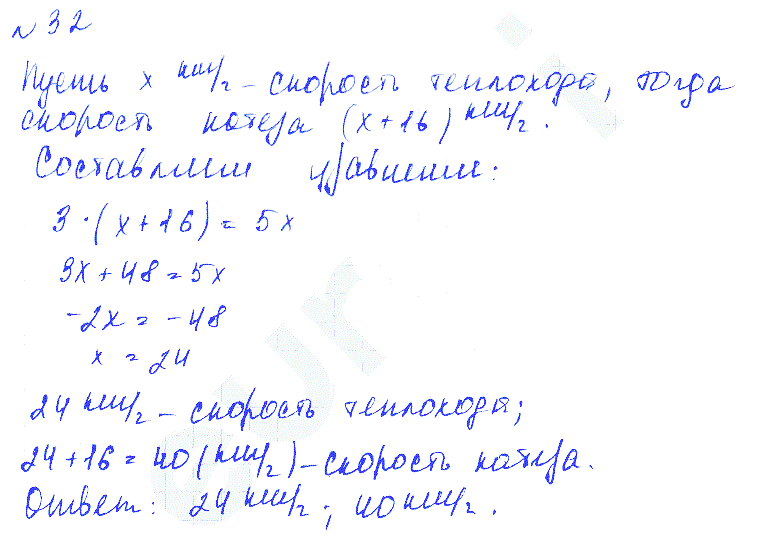 № 32
Пусть x км/ч – скорость теплохода, тогда
скорость катера (x+16) км/ч.
Составим уравнение:
3·(x+16) = 5x
3x+48=5x
-2x = -48
x = 24
24 км/ч – скорость теплохода;
24+16=40(км/ч)–скорость катера.
Ответ: 24 км/ч; 40 км/ч.